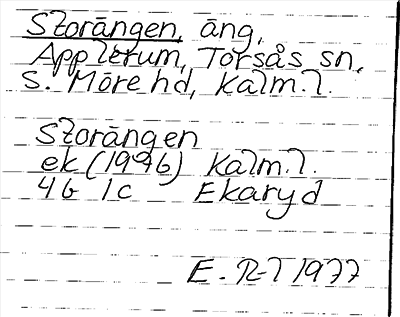 Storängen, äng,
Applerum, Torsås sn,
S. Möre hd, Kalm. l.
Storängen
ek (1946) Kalm. l.
4G 1c Ekaryd
E. R-T 1977